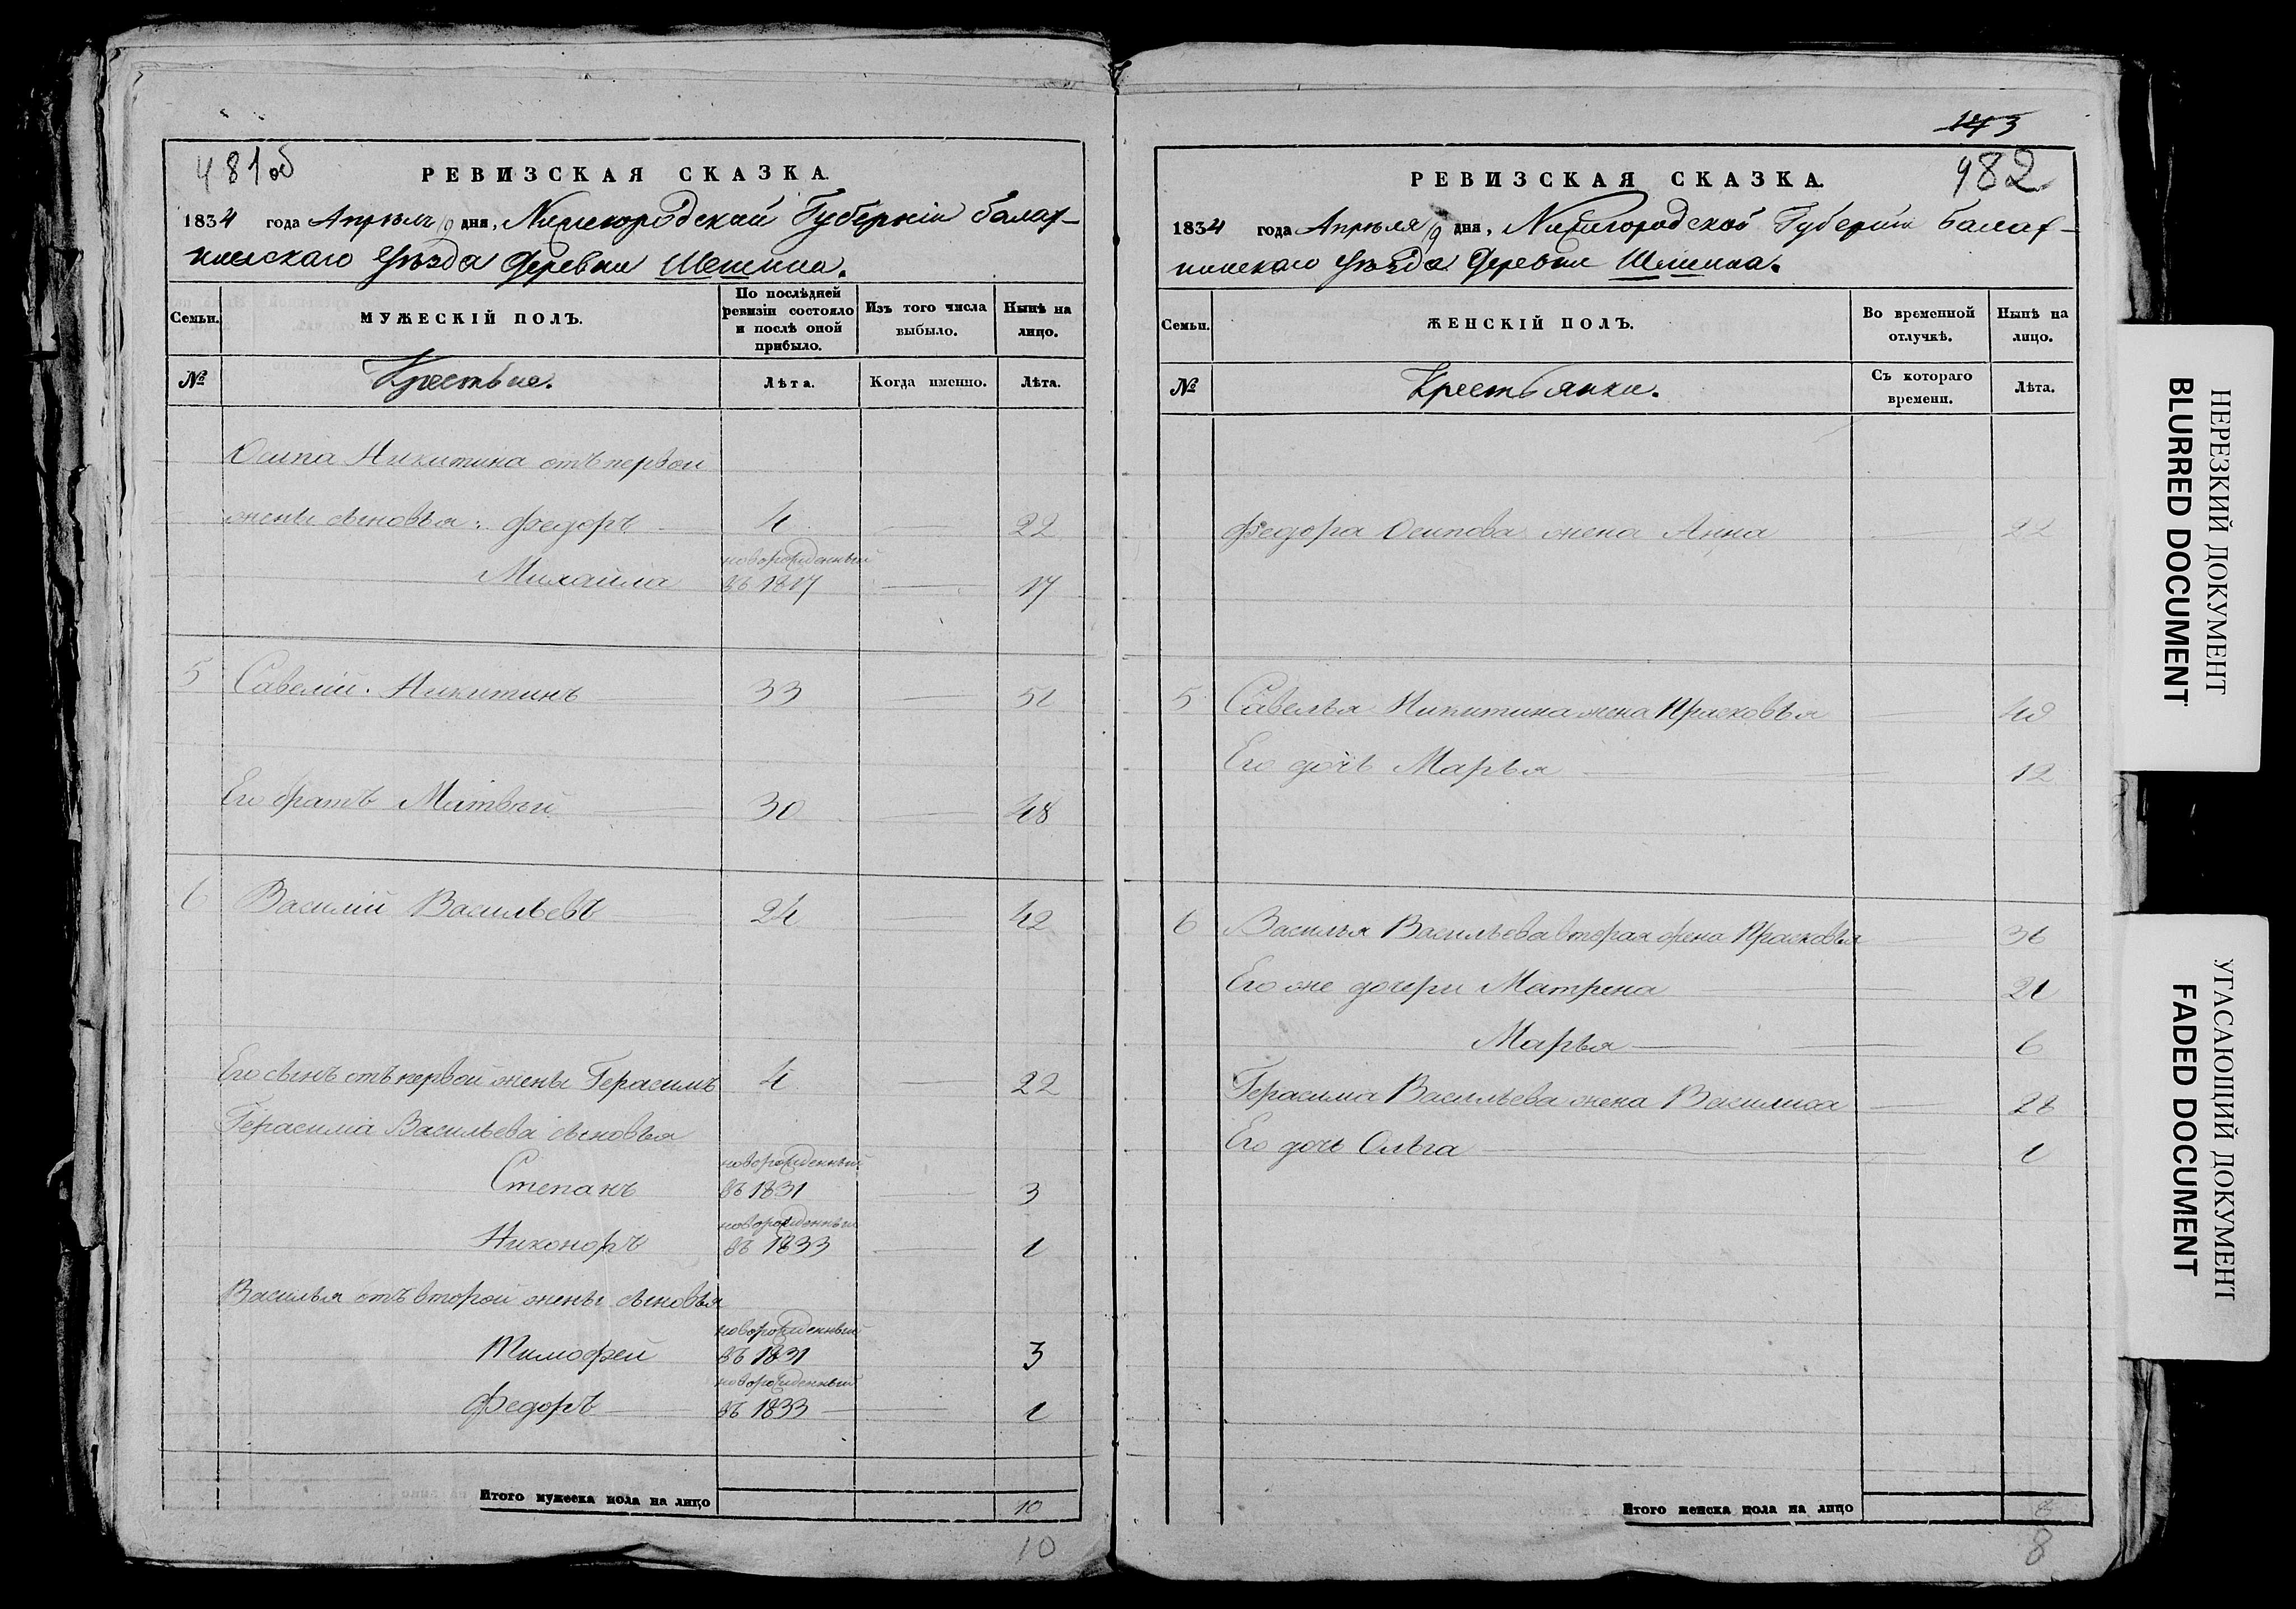 481об
РЕВИЗСКАЯ СКАЗКА.
1834 года Апрѣля 19 дня, Нижегородской Губерніи Балах-
нинскаго Уѣзда Деревни Шешина.
Семьи.
МУЖЕСКІЙ ПОЛЪ.
По послѣдней ревизіи состояло и послѣ оной прибыло.
Изъ того числа выбыло.
Нынѣ на лицо.
№
Крестьяне.
Лѣта.
Когда именно.
Лѣта.
Осипа Никитина отъ первой
жены сыновья: Федоръ 4 22
новорожденный
Михайла въ 1817 17
5 Савелій Никитинъ 33 51
Его братъ Матвѣй 30 48
6 Василій Васильевъ 24 42
Его сынъ отъ первой жены Герасимъ 4 22
Герасима Васильева сыновья
новорожденный
Степанъ въ 1831 3
новорожденный
Никоноръ въ 1833 1
Василья отъ второй жены сыновья
новорожденный
Тимофей въ 1831 3
новорожденный
Федоръ въ 1833 1
Итого мужеска пола на лицо 10
10
143
982
РЕВИЗСКАЯ СКАЗКА.
1834 года Апрѣля 19 дня, Нижегородской Губерніи Балах-
нинскаго Уѣзда Деревни Шешина.
Семьи.
ЖЕНСКІЙ ПОЛЪ.
Во временной отлучкѣ.
Нынѣ на лицо.
№
Крестьянки.
Съ котораго времени.
Лѣта.
Федора Осипова жена Анна 22
5 Савелья Никитина жена Прасковья 49
Его дочь Марья 12
6 Василья Васильева вторая жена Прасковья 36
Его же дочери Матрена 21
Марья 6
Герасима Васильева жена Василиса 28
Его дочь Ольга 1
Итого женска пола на лицо 8
8
НЕРЕЗКИЙ ДОКУМЕНТ
BLURRED DOCUMENT
УГАСАЮЩИЙ ДОКУМЕНТ
FADED DOCUMENT